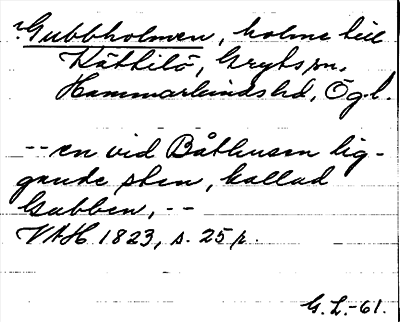 Gubbholmen, holme till
Kättilö, Gryts sn,
Hammarkinds hd, Ögl.
-- en vid Båthusen lig-
gande sten, kallad
Gubben, --
VAH 1823, s. 25 f.
G. L. -61.